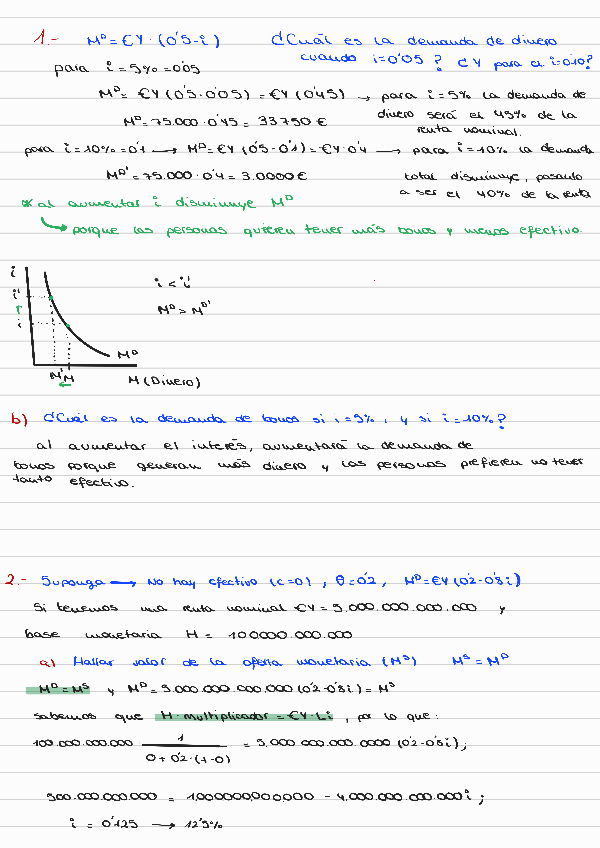 1.- Mᴰ = €Y · (0'5 - i) ¿Cuál es la demanda de dinero
cuando i = 0'05 ? ¿Y para el i = 0'10?
para i = 5% = 0'05
Mᴰ = €Y (0'5 - 0'05) = €Y (0'45) → para i = 5% la demanda de
dinero será el 45% de la
renta nominal.
Mᴰ = 75.000 · 0'45 = 33750 €
para i = 10% = 0'1 → Mᴰ = €Y (0'5 - 0'1) = €Y · 0'4 → para i = 10% la demanda
total disminuye, pasando
a ser el 40% de la renta
Mᴰ' = 75.000 · 0'4 = 3.0000 €
* al aumentar i disminuye Mᴰ
porque las personas quieren tener más bonos y menos efectivo.
i
i'
i
i < i'
Mᴰ > Mᴰ'
Mᴰ
M' M
M (Dinero)
b) ¿Cuál es la demanda de bonos si i = 5%, y si i = 10%?
al aumentar el interés, aumentará la demanda de
bonos porque generan más dinero y las personas prefieren no tener
tanto efectivo.
2.- Suponga → No hay efectivo (c=0), θ = 0'2, Mᴰ = €Y (0'2 - 0'8i)
Si tenemos una renta nominal €Y = 5.000.000.000.000 y
base monetaria H = 100000.000.000
a) Hallar valor de la oferta monetaria (Mˢ) Mˢ = Mᴰ
Mᴰ = Mˢ y Mᴰ = 5.000.000.000.000 (0'2 - 0'8i) = Mˢ
sabemos que H · multiplicador = €Y · Li, por lo que:
100.000.000.000 1 / 0 + 0'2 · (1 - 0) = 5.000.000.000.0000 (0'2 - 0'8i);
500.000.000.000 = 1.000.000.000.000 - 4.000.000.000.000 i;
i = 0'125 → 12'5%